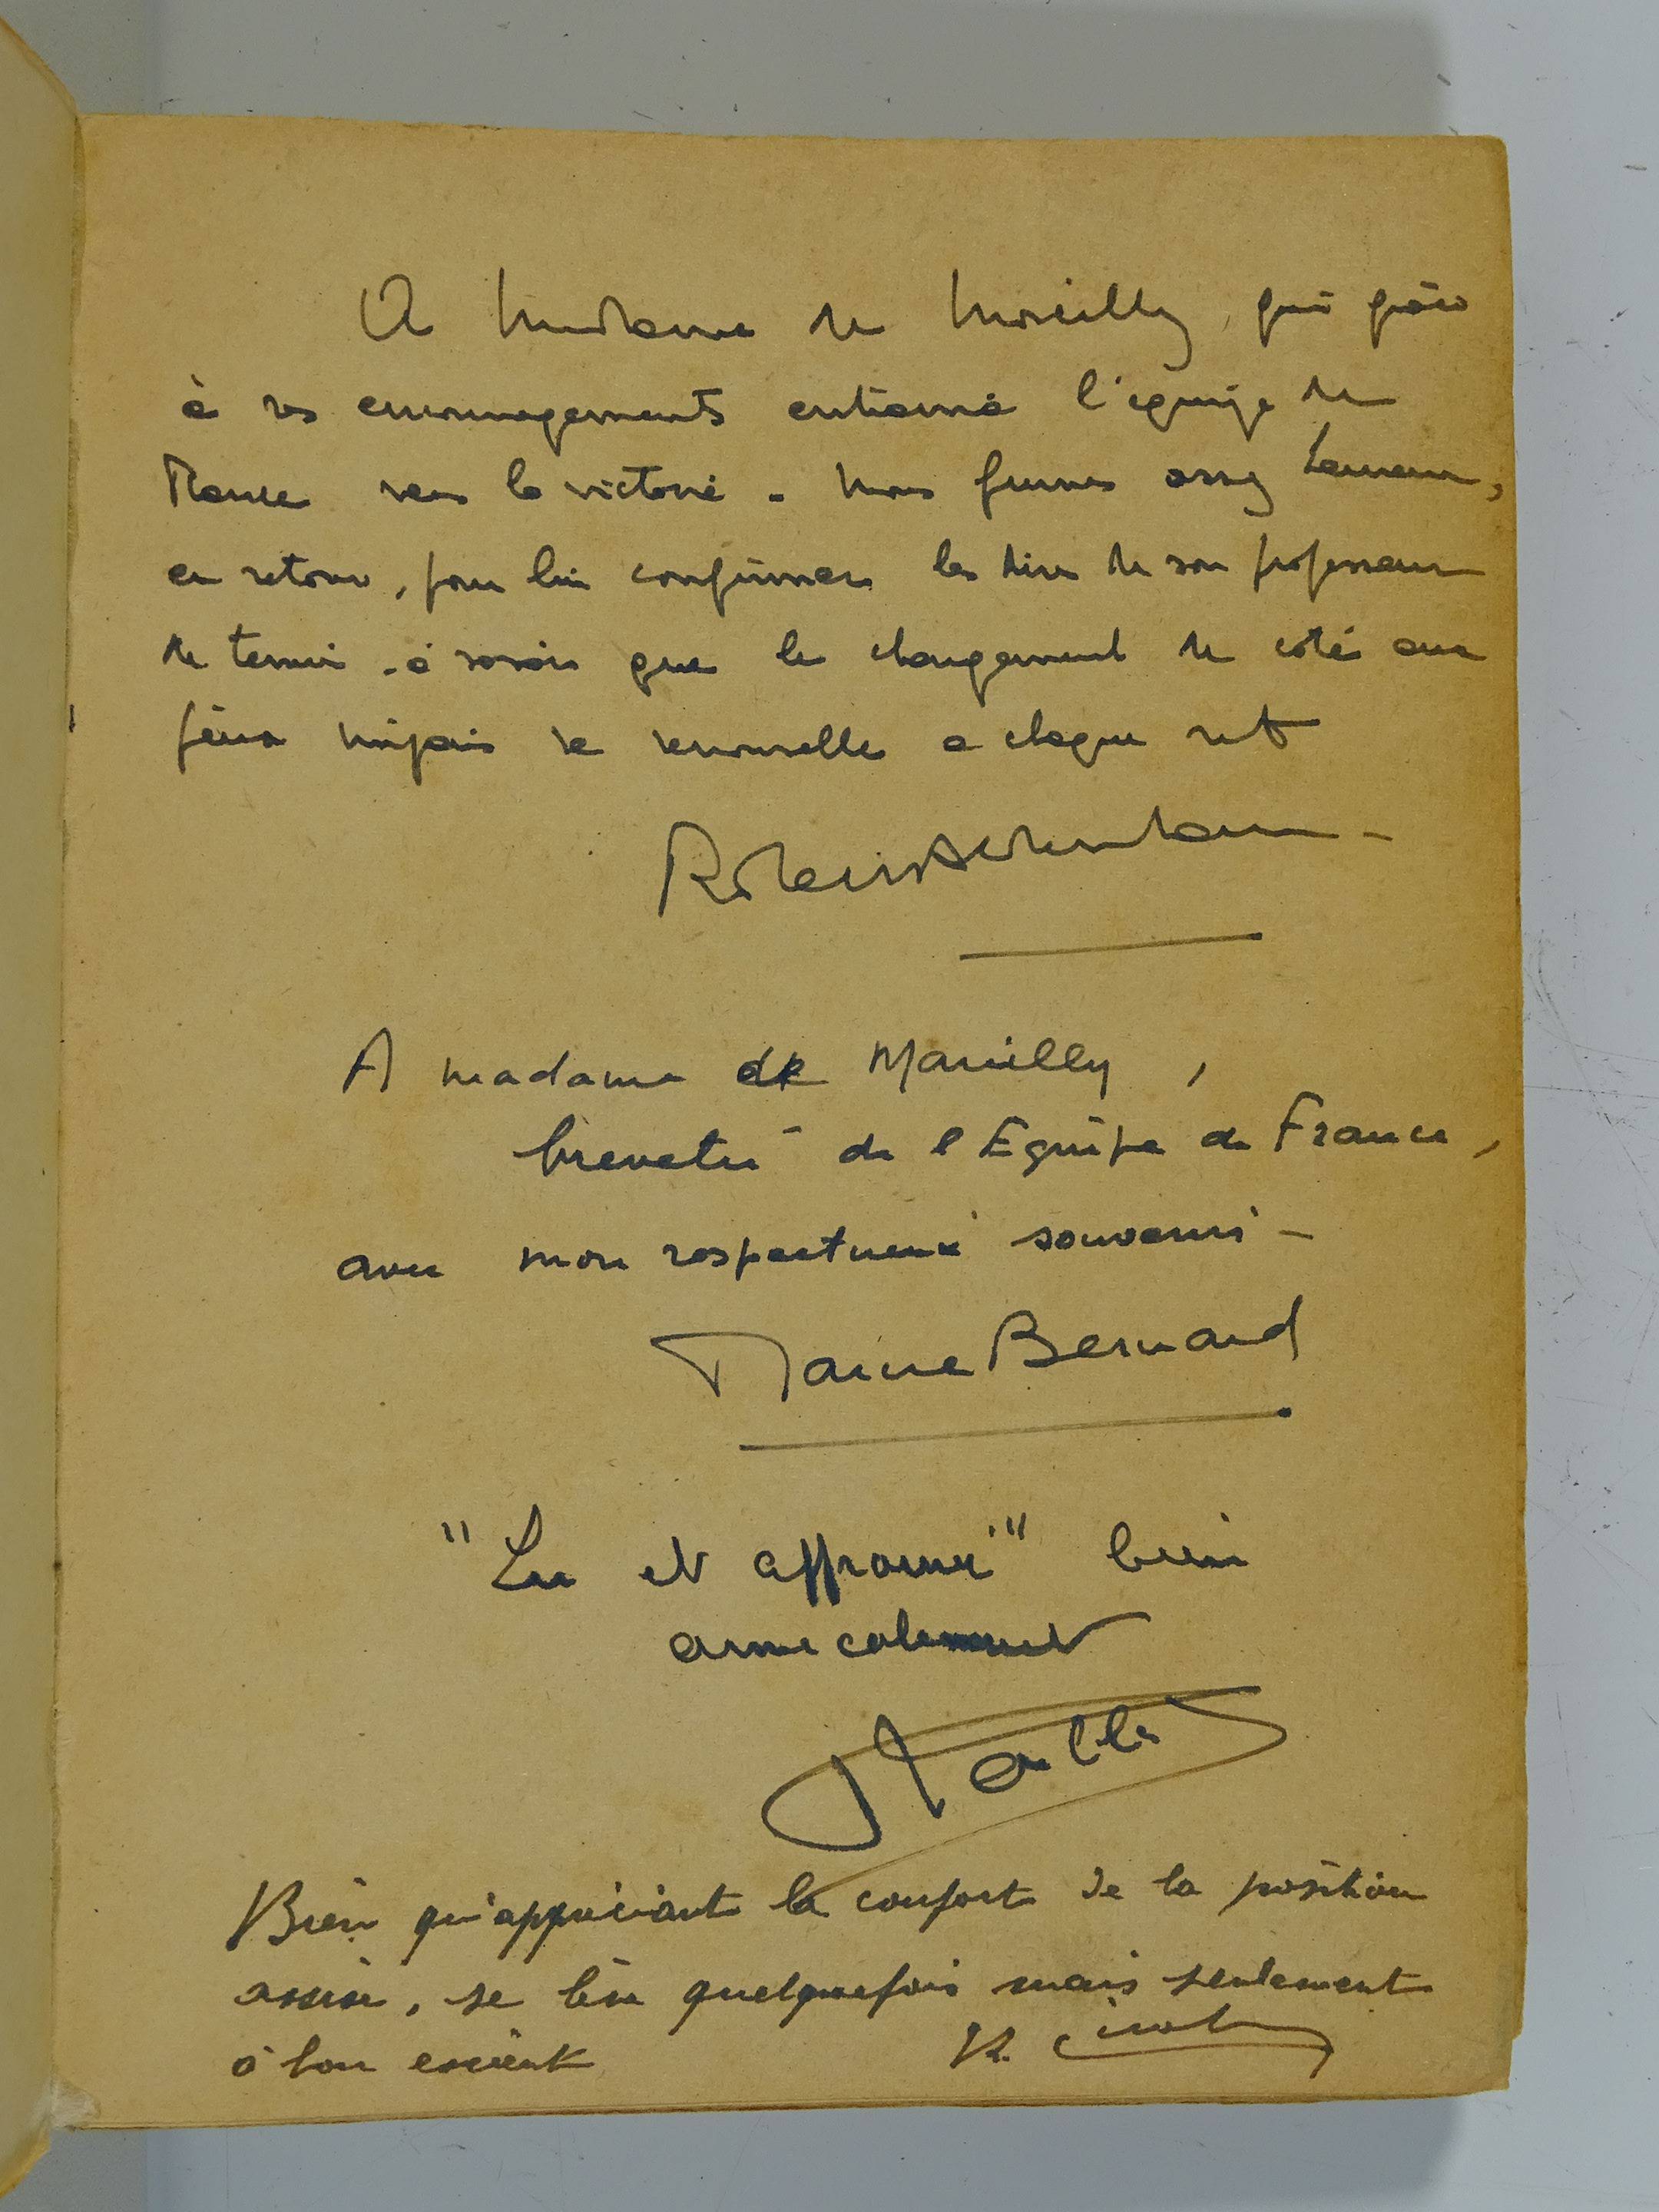 A Madame de Marcilly, qui grâce
à ses encouragements entraîna l'équipe de
France vers la victoire. Nous fumes assez heureux,
en retour, pour lui confirmer les dires de son professeur
de tennis - à savoir que le changement de côté aux
jeux impairs se renouvelle a chaque set
Robert Abdesselam -
A madame de Marcilly,
de l'Equipe de France,
avec mon respectueux souvenir -
Marcel Bernard
"Lu et approuvé" bien
amicalement
Bien qu'appréciant le confort de la position
assise, se lève quelquefois mais seulement
à bon escient